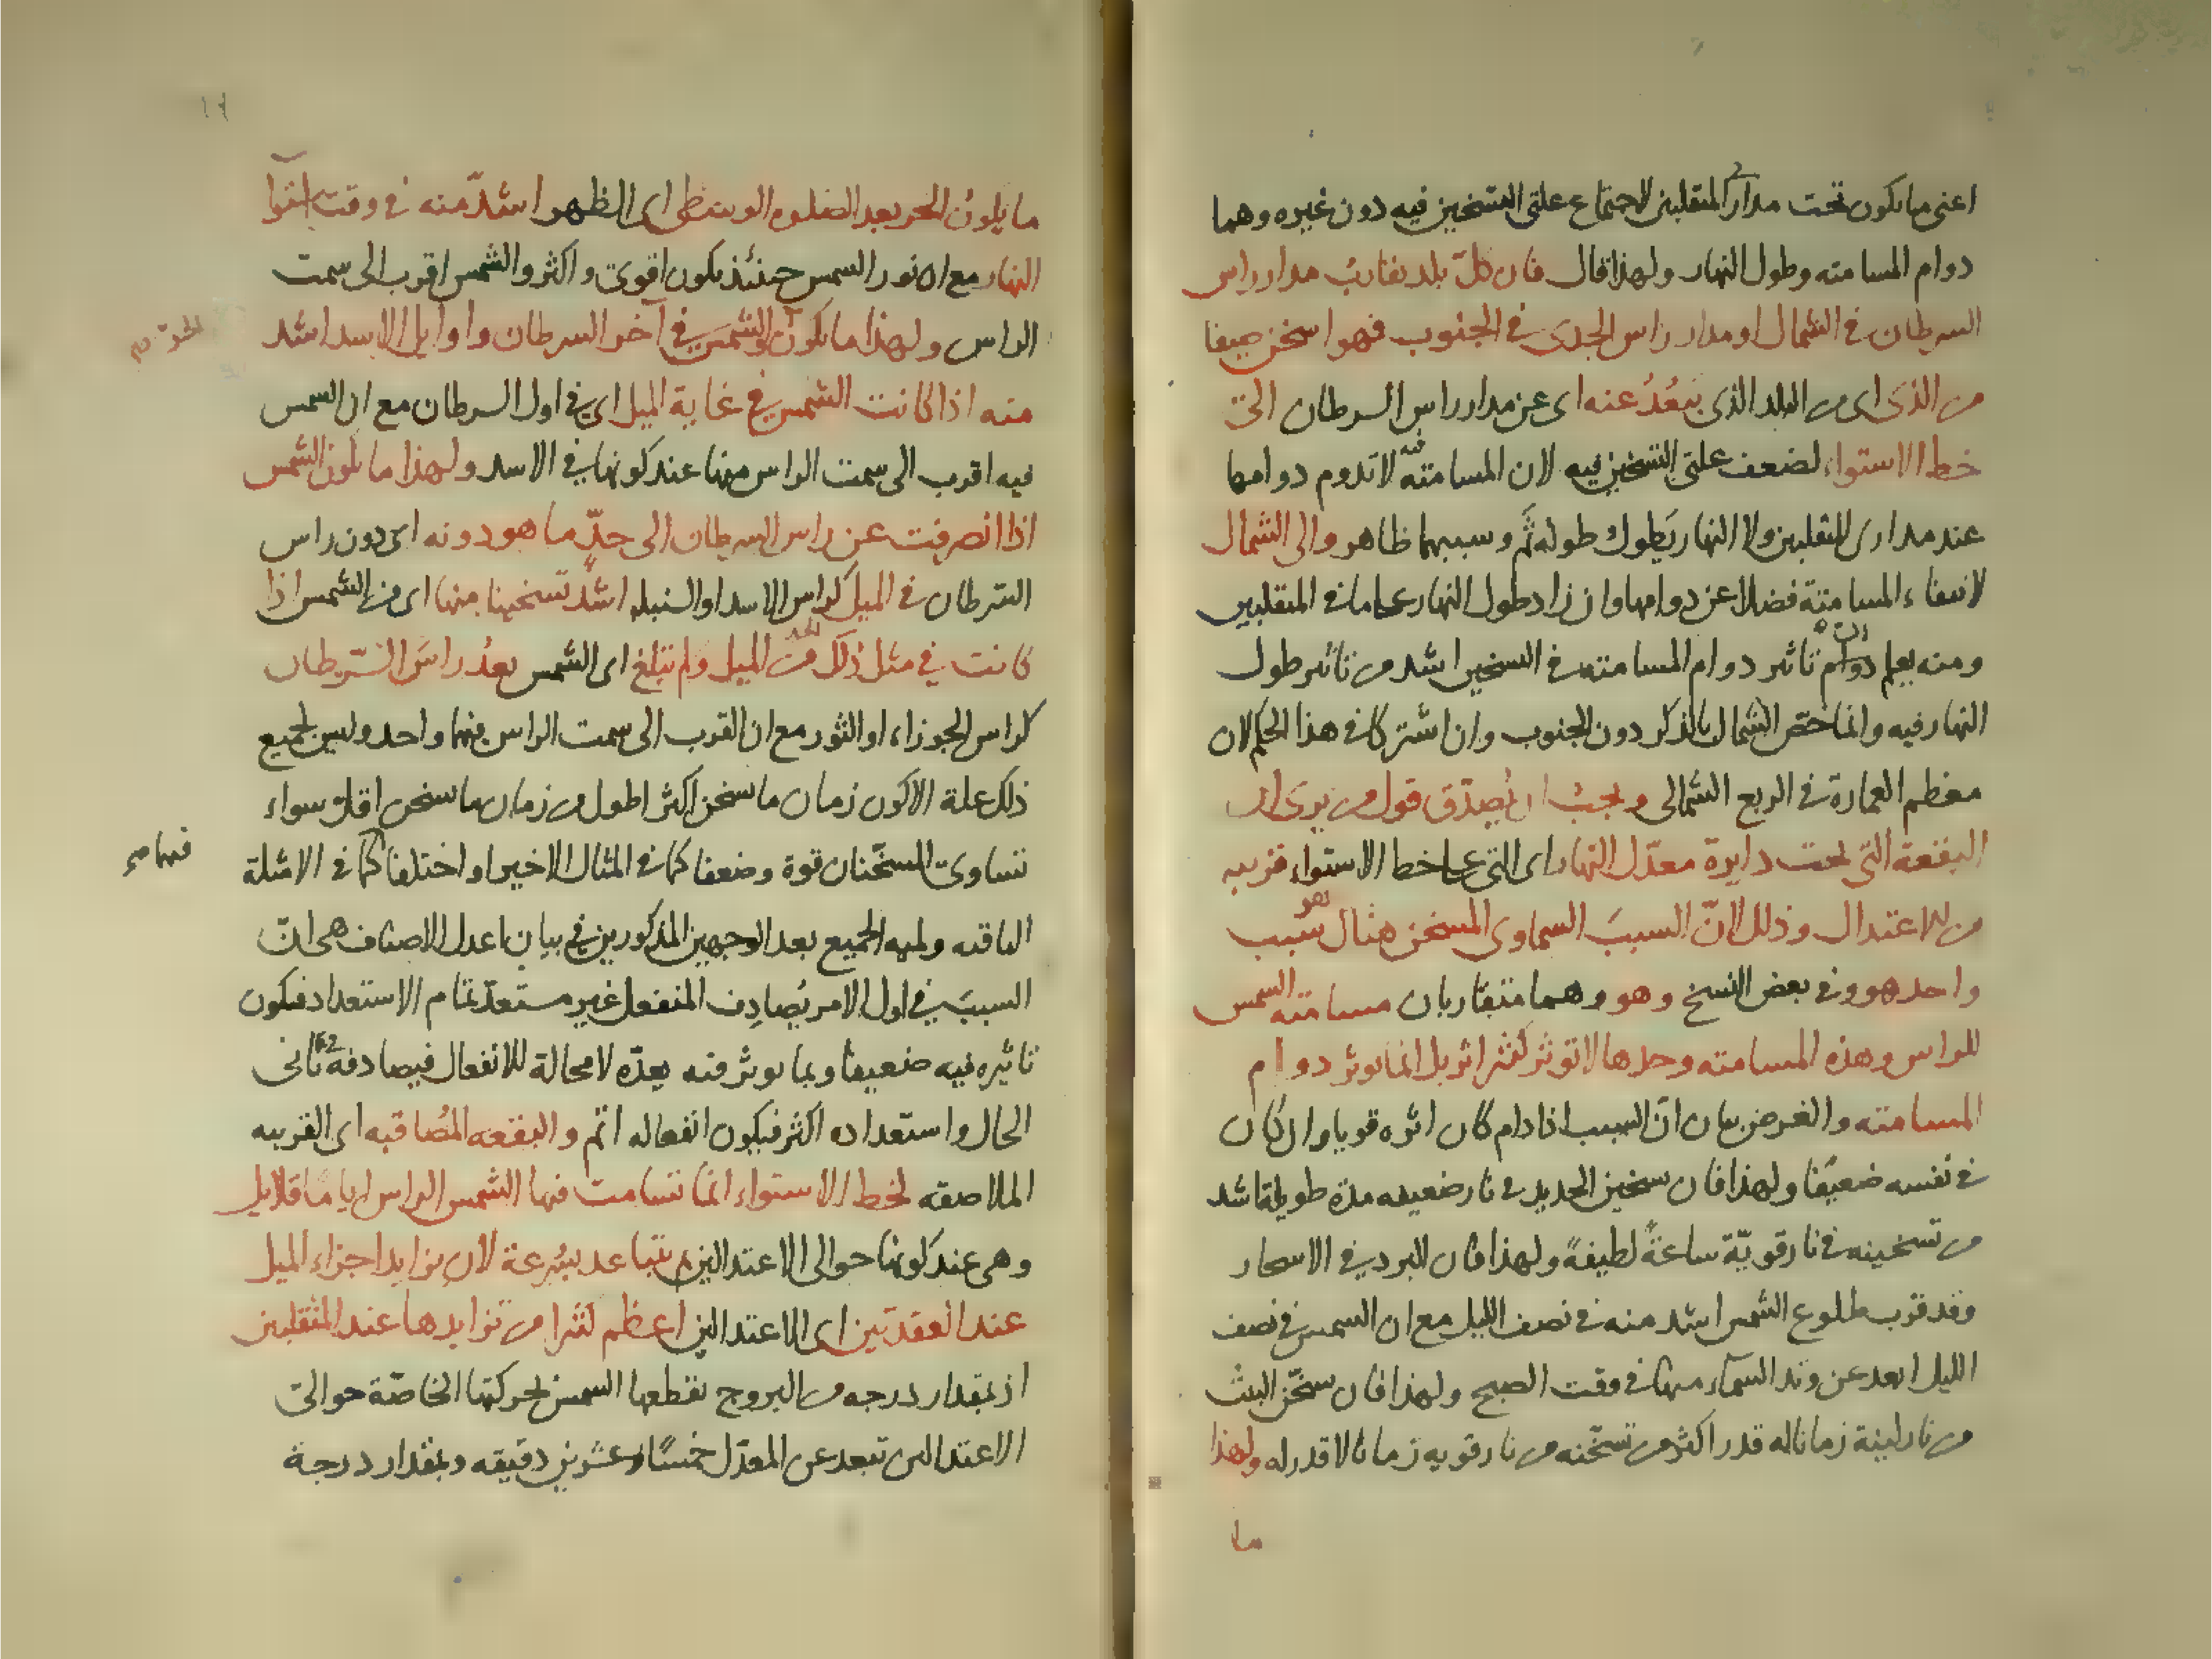 اعنى ما يكون تحت مدارى المنقلبين لاجتماع علتى التسخين فيه دون غيره وهما
دوام المسامتة وطول النهار ولهذا قال فان كلّ بلد يقارب مدار راس
السرطان فى الشمال او مدار راس الجدى فى الجنوب فهو اسخن صيفا
من الذى اى من البلد الذى يبعُدُ عنه اى عن مدار راس السرطان الى
خط الاستواء لضعف علتى التسخين فيه لان المسامتة ثمّه لا تدوم دوامها
عند مدارى المنقلبين ولا النهار يَطول طوله ثَم وسببهما ظاهر والى الشمال
لانتفاء المسامتة فضلا عن دوامها وان زاد طول النهار على ما فى المنقلبين
ومنه يعلم ان تاثير دوام المسامتة فى التسخين اشد من تاثير طول
النهار فيه وانما خصّ الشمال بالذكر دون الجنوب وان اشتركا فى هذا الحكم لان
معظم العمارة فى الربع الشمالى ويجب ان يُصدّق قول من يرى ان
البقعة التى تحت دايرة معدّل النهار اى التى على خط الاستواء قريبه
من الاعتدال وذلك لانّ السببَ السماوى المسخن هناك هو سبب
واحد هو وفى بعض النسخ وهو وهما متقاربان مسامتة الشمس
للراس وهذه المسامته وحدها لا تؤثر كثير اثر بل انما يوثر دوام
المسامته والغرض بيان انّ السبب اذا دام كان اثره قويا وان كان
فى نفسه ضعيفًا ولهذا فان سخين الحديد فى نار ضعيفه مدّة طويلة اشد
من تسخينه فى نار قويّة ساعةً لطيفةً ولهذا فان البرد فى الاسحار
وقد قرب طلوع الشمس اشد منه فى نصف الليل مع ان الشمس فى نصف
الليل ابعد عن وتد السماء منها فى وقت الصبح ولهذا فان سخّن البيت
من نار لينة زمانا له قدر اكثر من تسخّنه من نار قويه زمانا لا قدر له ولهذا
ما
١٦
ما يكون الحر بعد الصلوه الوسطى اى الظهر اشدّ منه فى وقت استواء
النهار مع ان نور الشمس حينئذ يكون اقوى واكثر والشمس اقرب الى سمت
الراس ولهذا ما يكون والشمس فى آخر السرطان واوايل الاسد اشد
الحرّ صح
منه اذا كانت الشمس فى غاية الميل اى فى اول السرطان مع ان الشمس
فيه اقرب الى سمت الراس منها عند كونها فى الاسد ولهذا ما يكون الشمس
اذا انصرفت عن راس السرطان الى حدّ ما هو دونه اى دون راس
السّرطان فى الميل كراس الاسد او السنبله اشدّ تسخينا منها اى من الشمس اذا
كانت فى مثل ذلك الحد من الميل ولم تبلغ اى الشمس بعدُ راسَ السّرطان
كراس الجوزاء او الثور مع ان القرب الى سمت الراس فيهما واحد وليس لجميع
ذلك علة الا كون زمان ما سخن اكثر اطول من زمان ما سخن اقل سواء
تساوى المسخّنان قوة وضعفا كما فى المثال الاخير او اختلفا كما فى الامثلة
فيهما صح
الباقيه ولميه الجميع بعد الوجهين المذكورين فى بيان اعدل الاصناف هى انّ
السببَ فى اول الامر يُصادِف المنفعل غير مستعدّ تمام الاستعداد فيكون
تاثيره فيه ضعيفا وبما يوثر فيه يعدّه لا محالة للانفعال فيصادفه فى ثانى
الحال واستعداده اكثر فيكون انفعاله اتم والبقعه المُصاقبه اى القريبه
الملاصقه لخط الاستواء انما تسامت فيها الشمس الراس اياما قلايل
وهى عند كونها حوالى الاعتدالين ثم يتباعد بسُرعة لان تزايد اجزاء الميل
عند العقدتين اى الاعتدالين اعظم كثيرا من تزايدها عند المنقلبين
اذ بمقدار درجه من البروج تقطعها الشمس بحركتها الخاصّة حوالى
الاعتدالين تبعد عن المعدّل خمسًا وعشرين دقيقه وبمقدار درجة